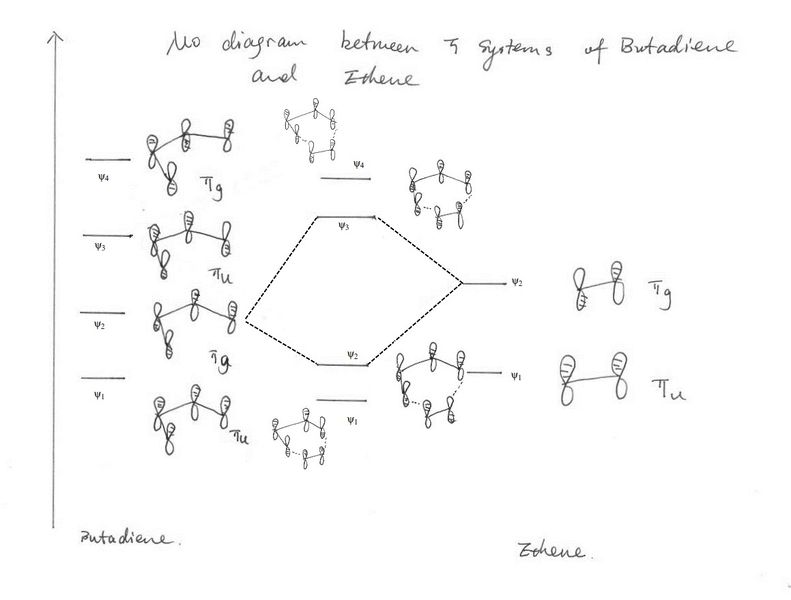 MO diagram between π systems of Butadiene
and Ethene
Ψ4
πg
Ψ3
πu
Ψ2
πg
Ψ1
πu
Ψ4
Ψ3
Ψ2
Ψ1
Ψ2
πg
Ψ1
πu
Butadiene.
Ethene.